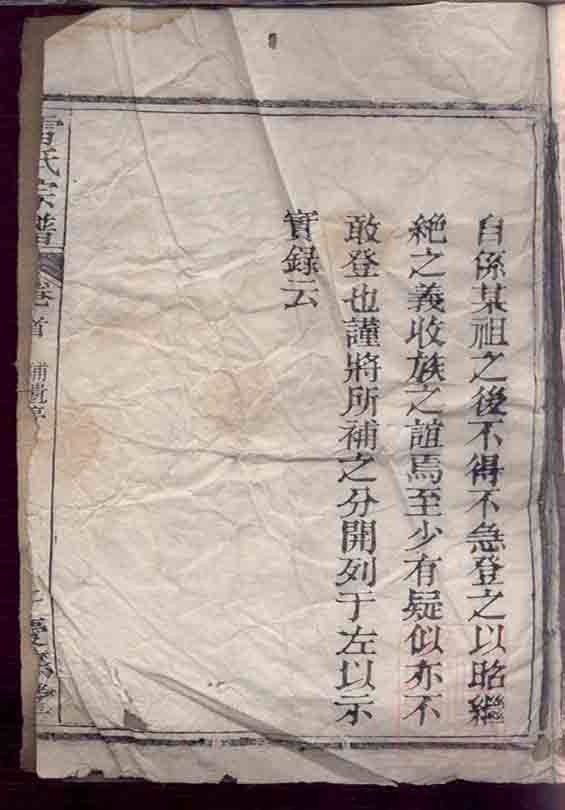 自係某祖之後不得不急登之以昭繼
絶之義收族之誼焉至少有疑似亦不
敢登也謹將所補之分開列于左以示
實録云
雷氏宗譜 卷首